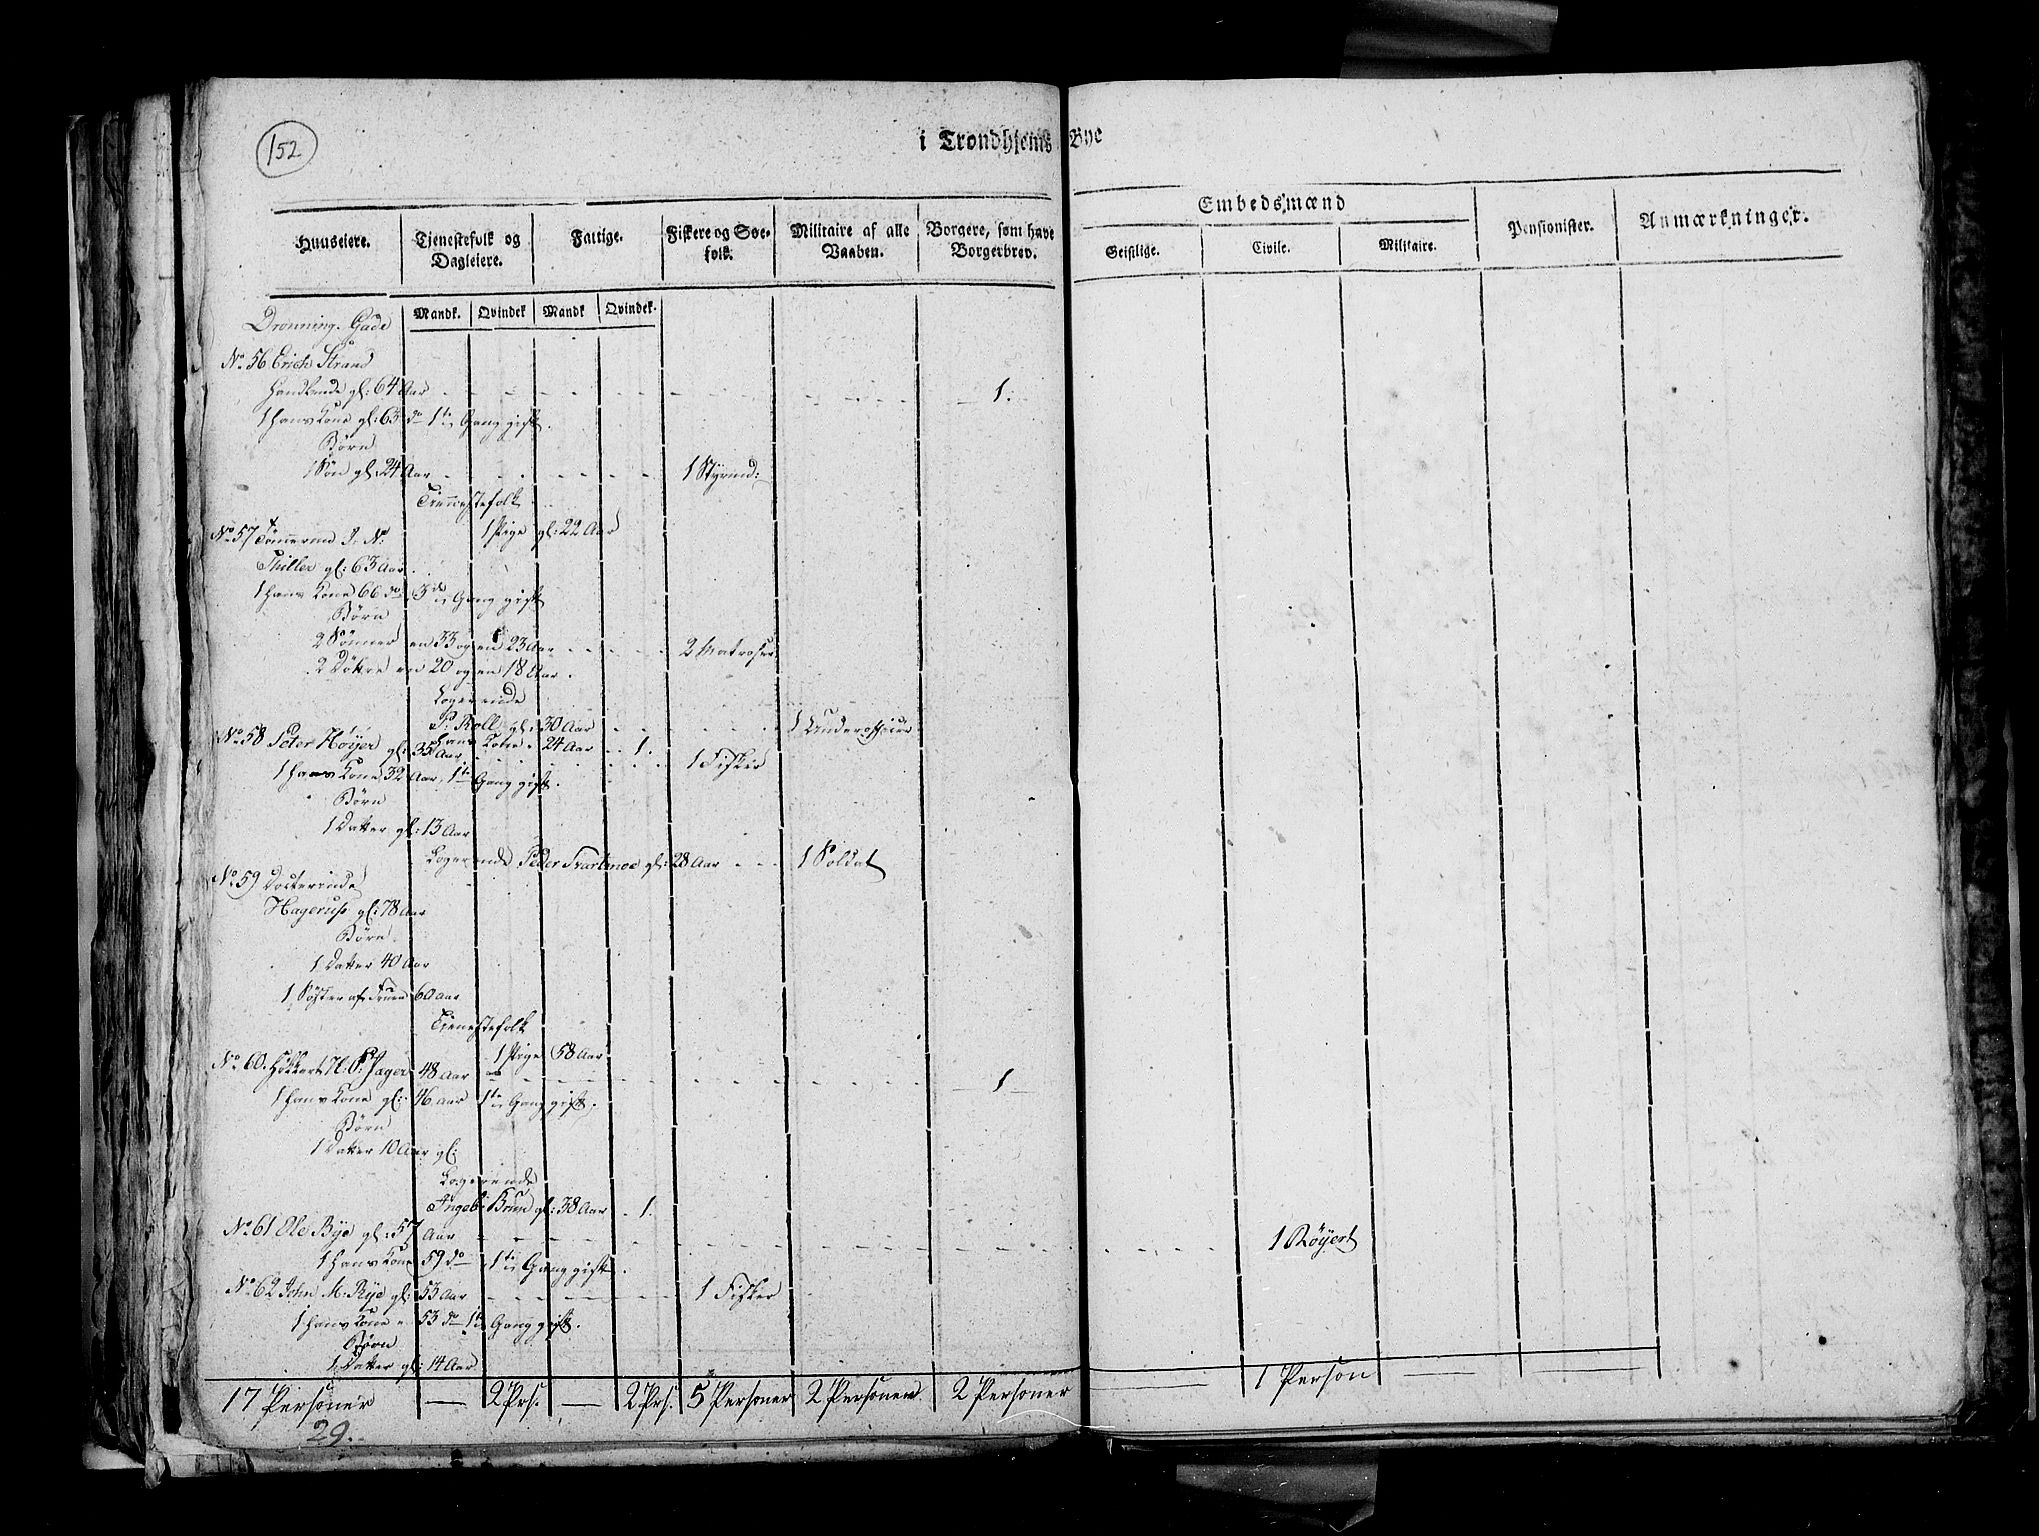 152
i Trondhjems Bye
Huuseiere.
Tjenestefolk og Dagleiere.
Fattige.
Fiskere og Søefolk.
Militaire af alle Vaaben.
Borgere, som have Borgerbrev.
Embedsmænd
Geistlige.
Civile.
Militaire.
Pensionister.
Anmærkninger.
Mandk. Qvindek Mandk Qvindek.
Dronning. Gade
No 56 Erich Strand
Handlende gl: 64 Aar 1.
1 Hans Kone gl: 63 do 1te Gang gift.
Børn
1 Søn gl: 24 Aar 1 Styrmd:
Tienestefolk
1 Pige gl: 22 Aar
No 57 Tømermd J. N:
Thiller gl: 63 Aar.
1 Hans Kone 66 do 3de Gang gift
Børn
2 Sønner en 33 og en 23 Aar 2 Matroser
2 Døttre en 20 og en 18 Aar.
Logerende
P: Roll gl: 30 Aar 1 Underofficier
Hans Kone 24 Aar 1.
No 58 Peter Høyer gl: 35 Aar 1 Fisker
1 Hans Kone 32 Aar, 1te Gang gift.
Børn
1 Datter gl: 13 Aar
Logerende Peder Svartmoe gl: 28 Aar 1 Soldat
No 59 Docterinde
Hagerup gl: 78 Aar
Børn
1 Datter 40 Aar
1 Søster af Fruen 60 Aar
Tienestefolk
1 Pige 58 Aar
No 60. N: P: Jager 48 Aar 1
1 Hans Kone gl: 46 Aar 1te Gang gift.
Børn
1 Datter 10 Aar gl:
Logerende
Ingeb: Brun gl: 38 Aar 1.
No 61 Ole Bye gl: 57 Aar 1 Røyert
1 Hans Kone 59 do 1te Gang gift.
No 62 John M. Rye gl: 53 Aar 1 Fisker
1 Hans Kone 53 do 1te Gang gift.
Børn
1 Datter gl: 14 Aar
17 Personer — 2 Prs. — 2 Prs. 5 Personer 2 Personer 2 Personer — 1 Person — —
29.